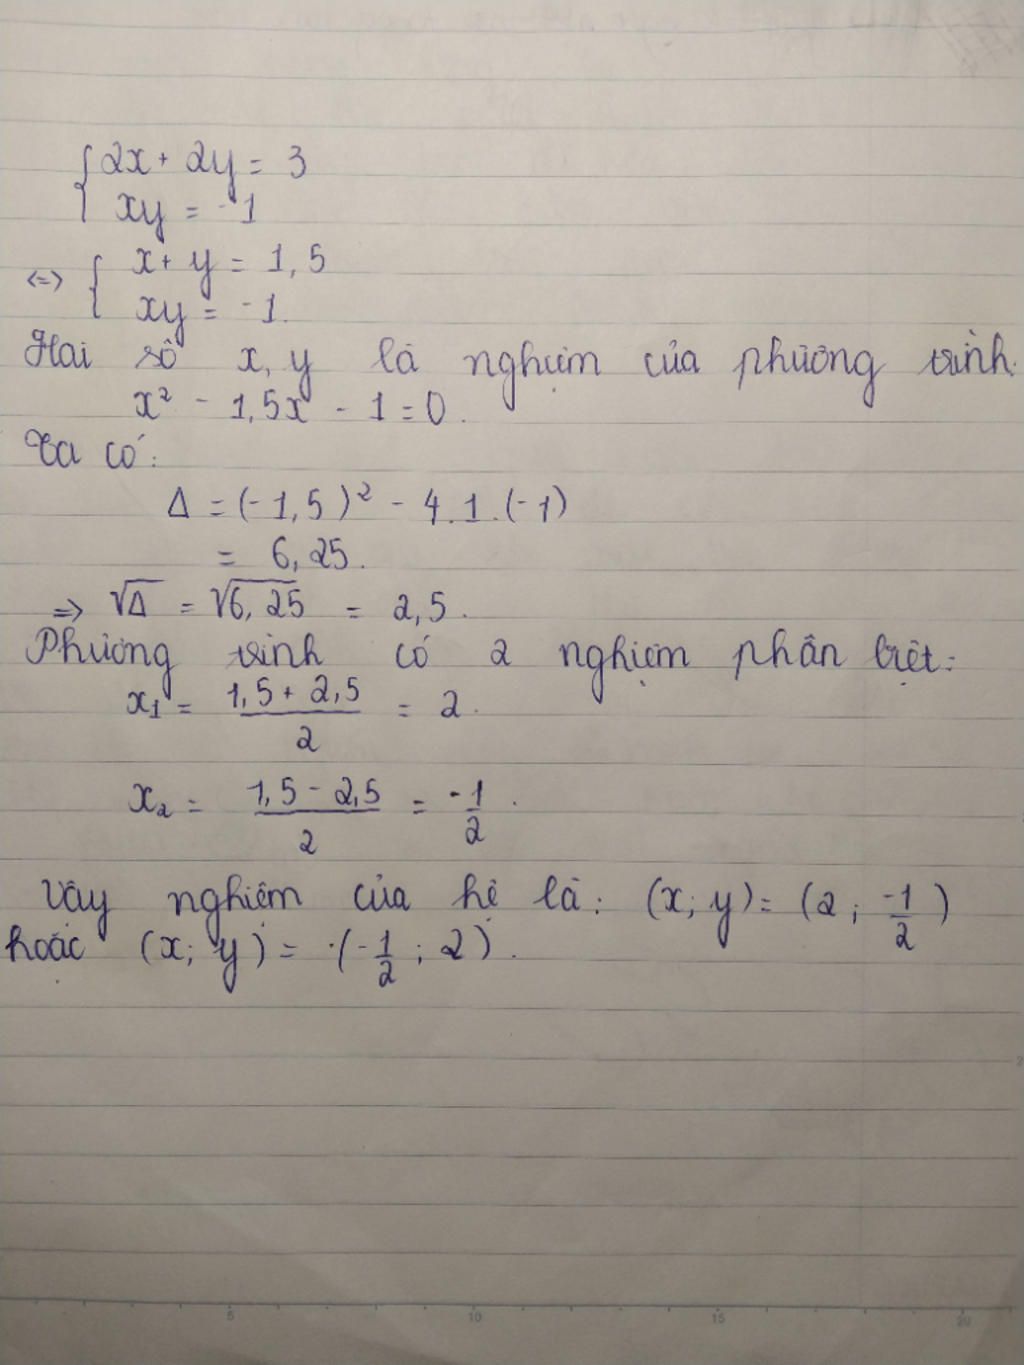 {2x + 2y = 3
xy = -1
<=> { x + y = 1,5
xy = -1.
Hai số x, y là nghiệm của phương trình:
x² - 1,5x - 1 = 0.
Ta có:
Δ = (-1,5)² - 4.1.(-1)
= 6,25.
=> √Δ = √6,25 = 2,5.
Phương trình có 2 nghiệm phân biệt:
x₁ = (1,5 + 2,5)/2 = 2.
x₂ = (1,5 - 2,5)/2 = -1/2.
Vậy nghiệm của hệ là: (x; y) = (2; -1/2)
hoặc (x; y) = (-1/2; 2).
5 10 15 20